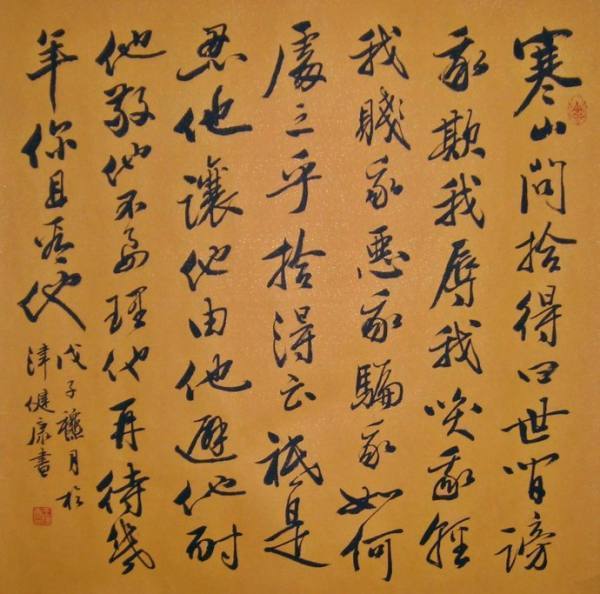 寒山問拾得曰世間謗
我欺我辱我笑我輕
我賤我惡我騙我如何
處之乎拾得云祇是
忍他讓他由他避他耐
他敬他不要理他再待幾
年你且看他
戊子穐月於
津健康書